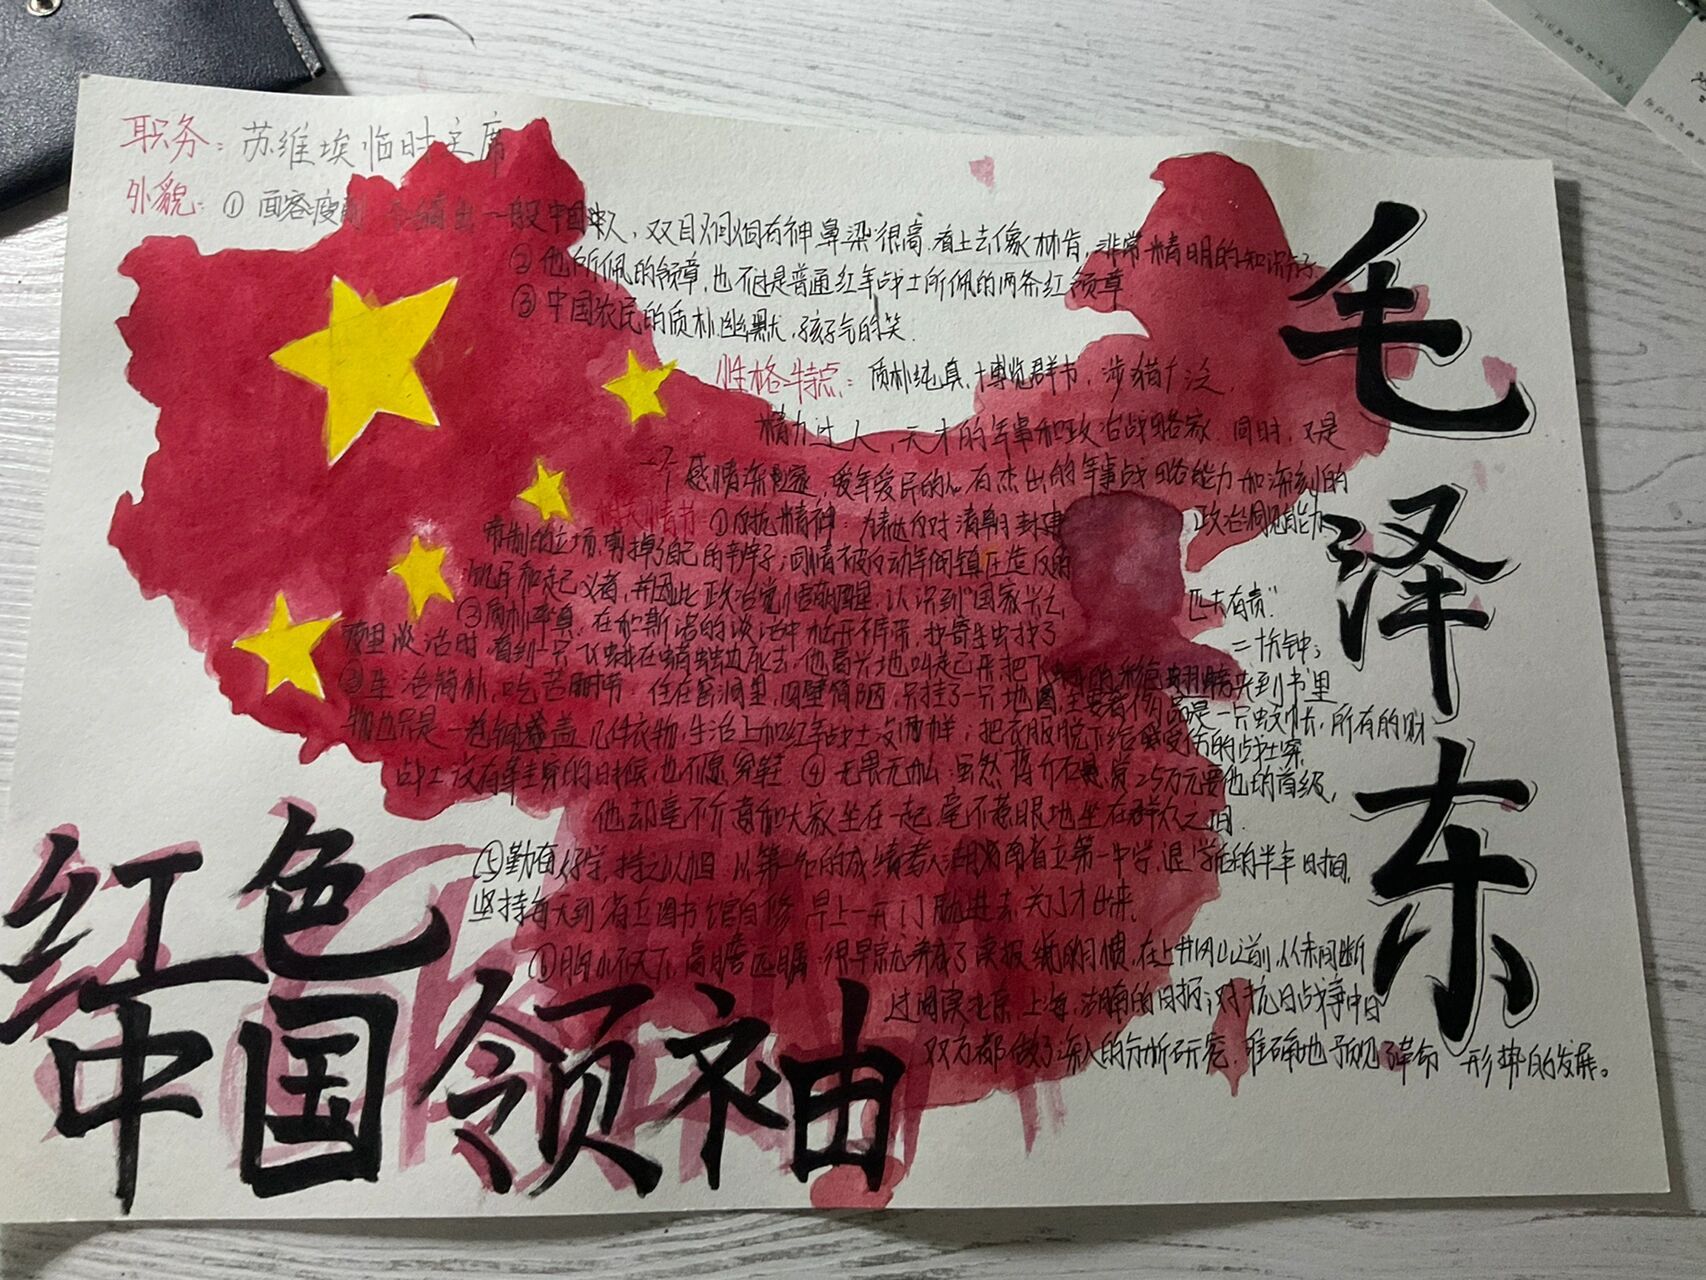 职务：苏维埃临时主席
外貌：① 面容瘦削 一般中国人，双目炯炯有神鼻梁很高，看上去像林肯，非常精明的知识分子
② 他所佩的领章，也不过是普通红军战士所佩的两条红领章
③ 中国农民的质朴幽默，孩子气的笑．
性格特点：质朴纯真，博览群书，涉猎广泛，
精力过人，天才的军事和政治战略家．同时，又是
一个感情深邃，爱军爱民的人 有杰出的军事战略能力和深刻的
政治洞见能力
相关情节 ①反抗精神：为表达内对清朝封建
帝制的立场，剪掉了自己的辫子；同情被反动军阀镇压造反的
饥民和起义者，并因此政治觉悟 ，认识到“国家兴亡
匹夫有责”
③质朴率真，在和斯诺的谈话中松开裤带，找寄生虫找了
二十分钟；
夜里谈话时，看到一只飞蛾在蜡烛边死去，他高兴地叫起已并把飞蛾的粉色翅膀夹到书里
②生活简朴，吃苦耐劳 住在窑洞里，四壁简陋，只挂了一只地图，主要奢侈品是一只蚊帐，所有的财
物也只是一卷铺盖几件衣物，生活上和红军战士没两样；把衣服脱下给受伤的战士穿
战士没有鞋穿的时候，也不愿穿鞋 ④ 无畏无惧：虽然蒋介石悬赏25万元要他的首级，
他却毫不介意和大家坐在一起，毫不 地坐在群众之间．
⑤勤奋好学，持之以恒：以第一名的成绩考入湖南省立第一中学，退学后的半年时间，
坚持每天到省立图书馆自修，早上一开门就进去，关门才出来．
胸怀天下，高瞻远瞩：很早就养成了读报纸的习惯，在上井冈山之前，从未间断
过阅读北京，上海，湖南的日报；对抗日战争中日
双方都做了深入的分析研究，准确地预见了革命形势的发展。
毛泽东
红色
中国领袖